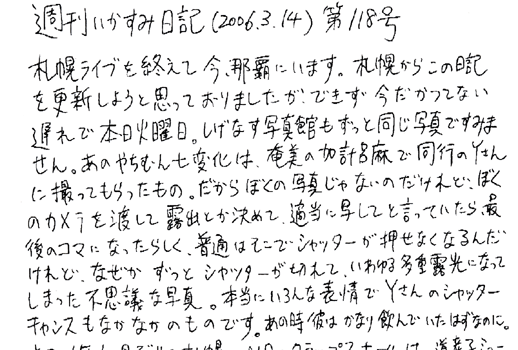 週刊いかすみ日記(2006.3.14) 第118号
札幌ライブを終えて今、那覇にいます。札幌からこの日記
を更新しようと思っておりましたが、できず 今だかつてない
遅れで本日火曜日。しげなす写真館もずっと同じ写真ですみま
せん。あのやちむん七変化は、奄美の加計呂麻で同行のYさん
に撮ってもらったもの。だからぼくの写真じゃないのだけれど、ぼく
のカメラを渡して露出とか決めて、適当に写してと言っていたら、最
後のコマになったらしく、普通はそこでシャッターが押せなくなるんだ
けれど、なぜか ずっと シャッターが切れて、いわゆる多重露光になって
しまった不思議な写真。本当にいろんな表情でYさんのシャッター
チャンスもなかなかのものです。あの時彼はかなり飲んでいたはずなのに。